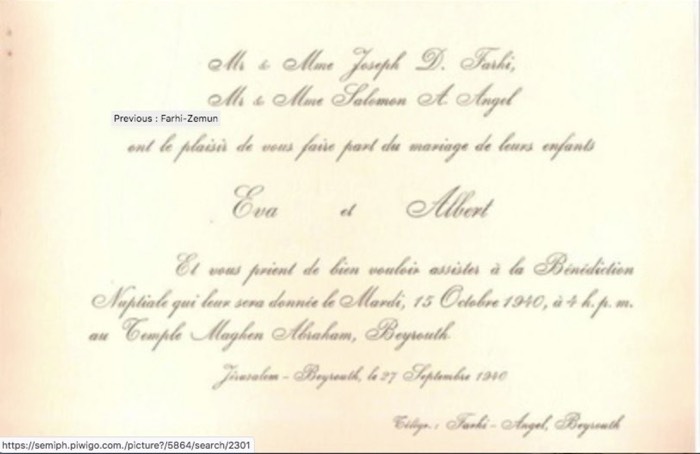 Mr & Mme Joseph D. Farhi,
Mr & Mme Salomon A. Angel
Previous : Farhi-Zemun
ont le plaisir de vous faire part du mariage de leurs enfants
Eva et Albert
Et vous prient de bien vouloir assister à la Bénédiction
Nuptiale qui leur sera donnée le Mardi, 15 Octobre 1940, à 4 h. p. m.
au Temple Maghen Abraham, Beyrouth
Jérusalem - Beyrouth, le 27 Septembre 1940
Télégr. : Farhi - Angel, Beyrouth
https://semiph.piwigo.com./picture?/5864/search/2301